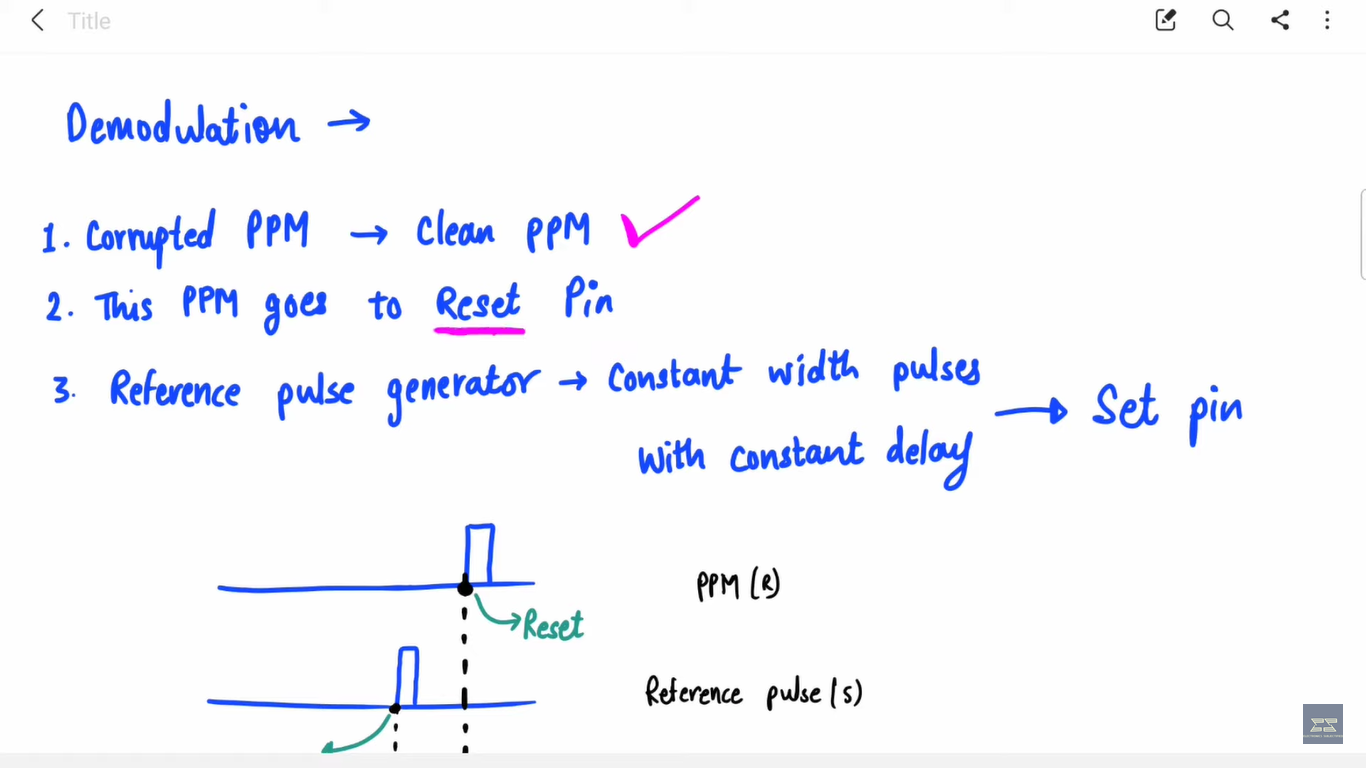 Title
Demodulation →
1. Corrupted PPM → Clean PPM ✓
2. This PPM goes to Reset Pin
3. Reference pulse generator → Constant width pulses
with constant delay
→ Set pin
PPM (R)
Reset
Reference pulse (s)